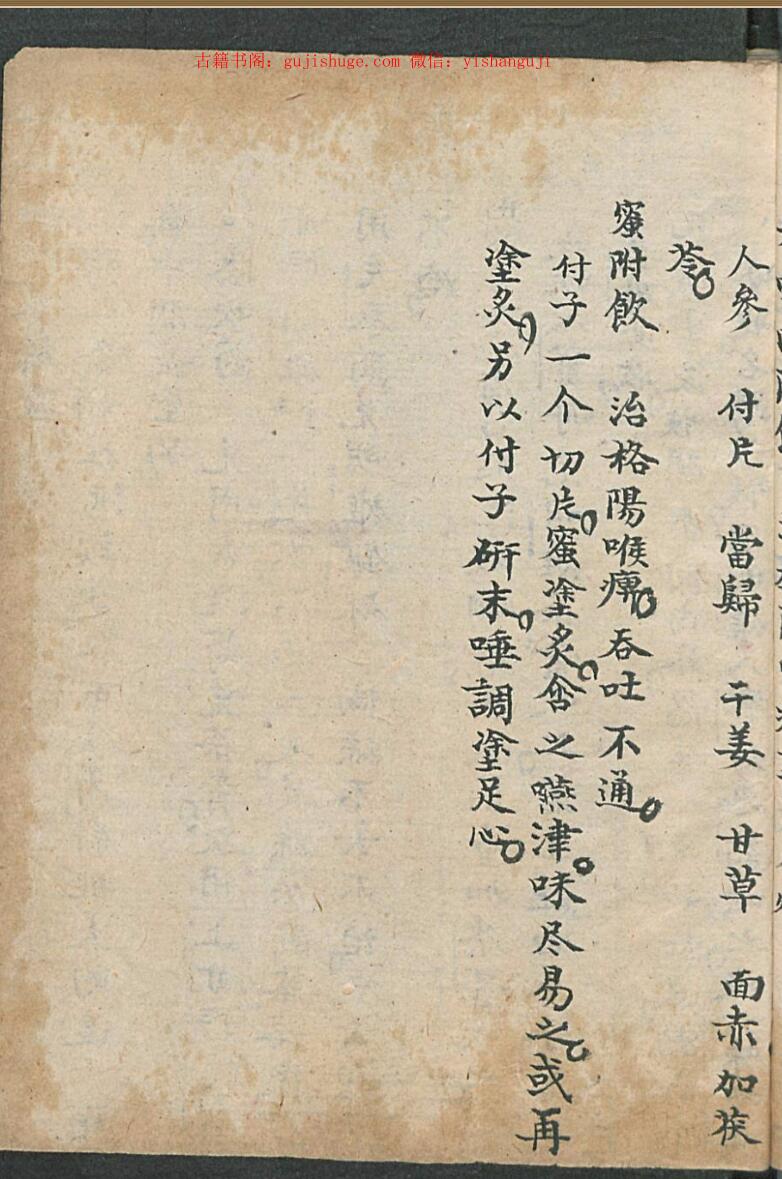 古籍书阁：gujishuge.com 微信：yishanguji
人參 付片 當歸 干姜 甘草 面赤加茯
苓。
蜜附飲 治格陽喉痹。吞吐不通。
付子一个切片。蜜塗炙。含之嚥津。味尽易之。或再
塗炙。另以付子研末。唾調塗足心。